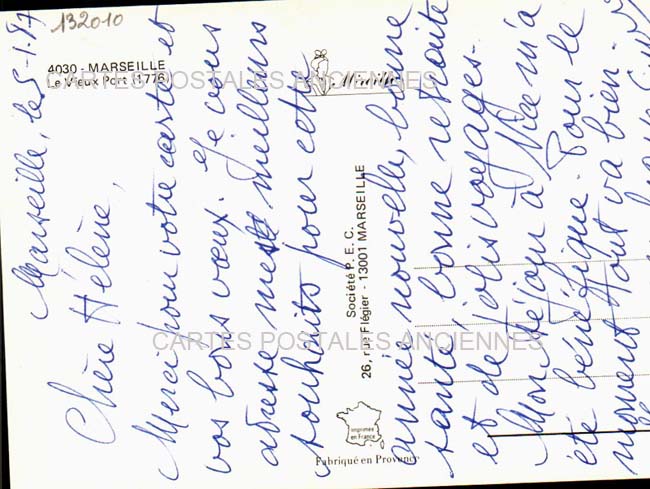 132010
4030 - MARSEILLE
Le Vieux Port (1776)
Mireille
CARTES POSTALES ANCIENNES
Société P. E. C.
26, rue Flégier - 13001 MARSEILLE
CARTES POSTALES ANCIENNES
Imprimée
en France
Fabriqué en Provence
Marseille, le 5-1.87
Chère Hélène,
Merci pour votre carte et
vos bons vœux. Je vous
adresse mes meilleurs
souhaits pour cette
année nouvelle, bonne
santé, bonne retraite
et de jolis voyages-
Mon séjour à Nice m'a
été bénéfique. Pour le
moment tout va bien-